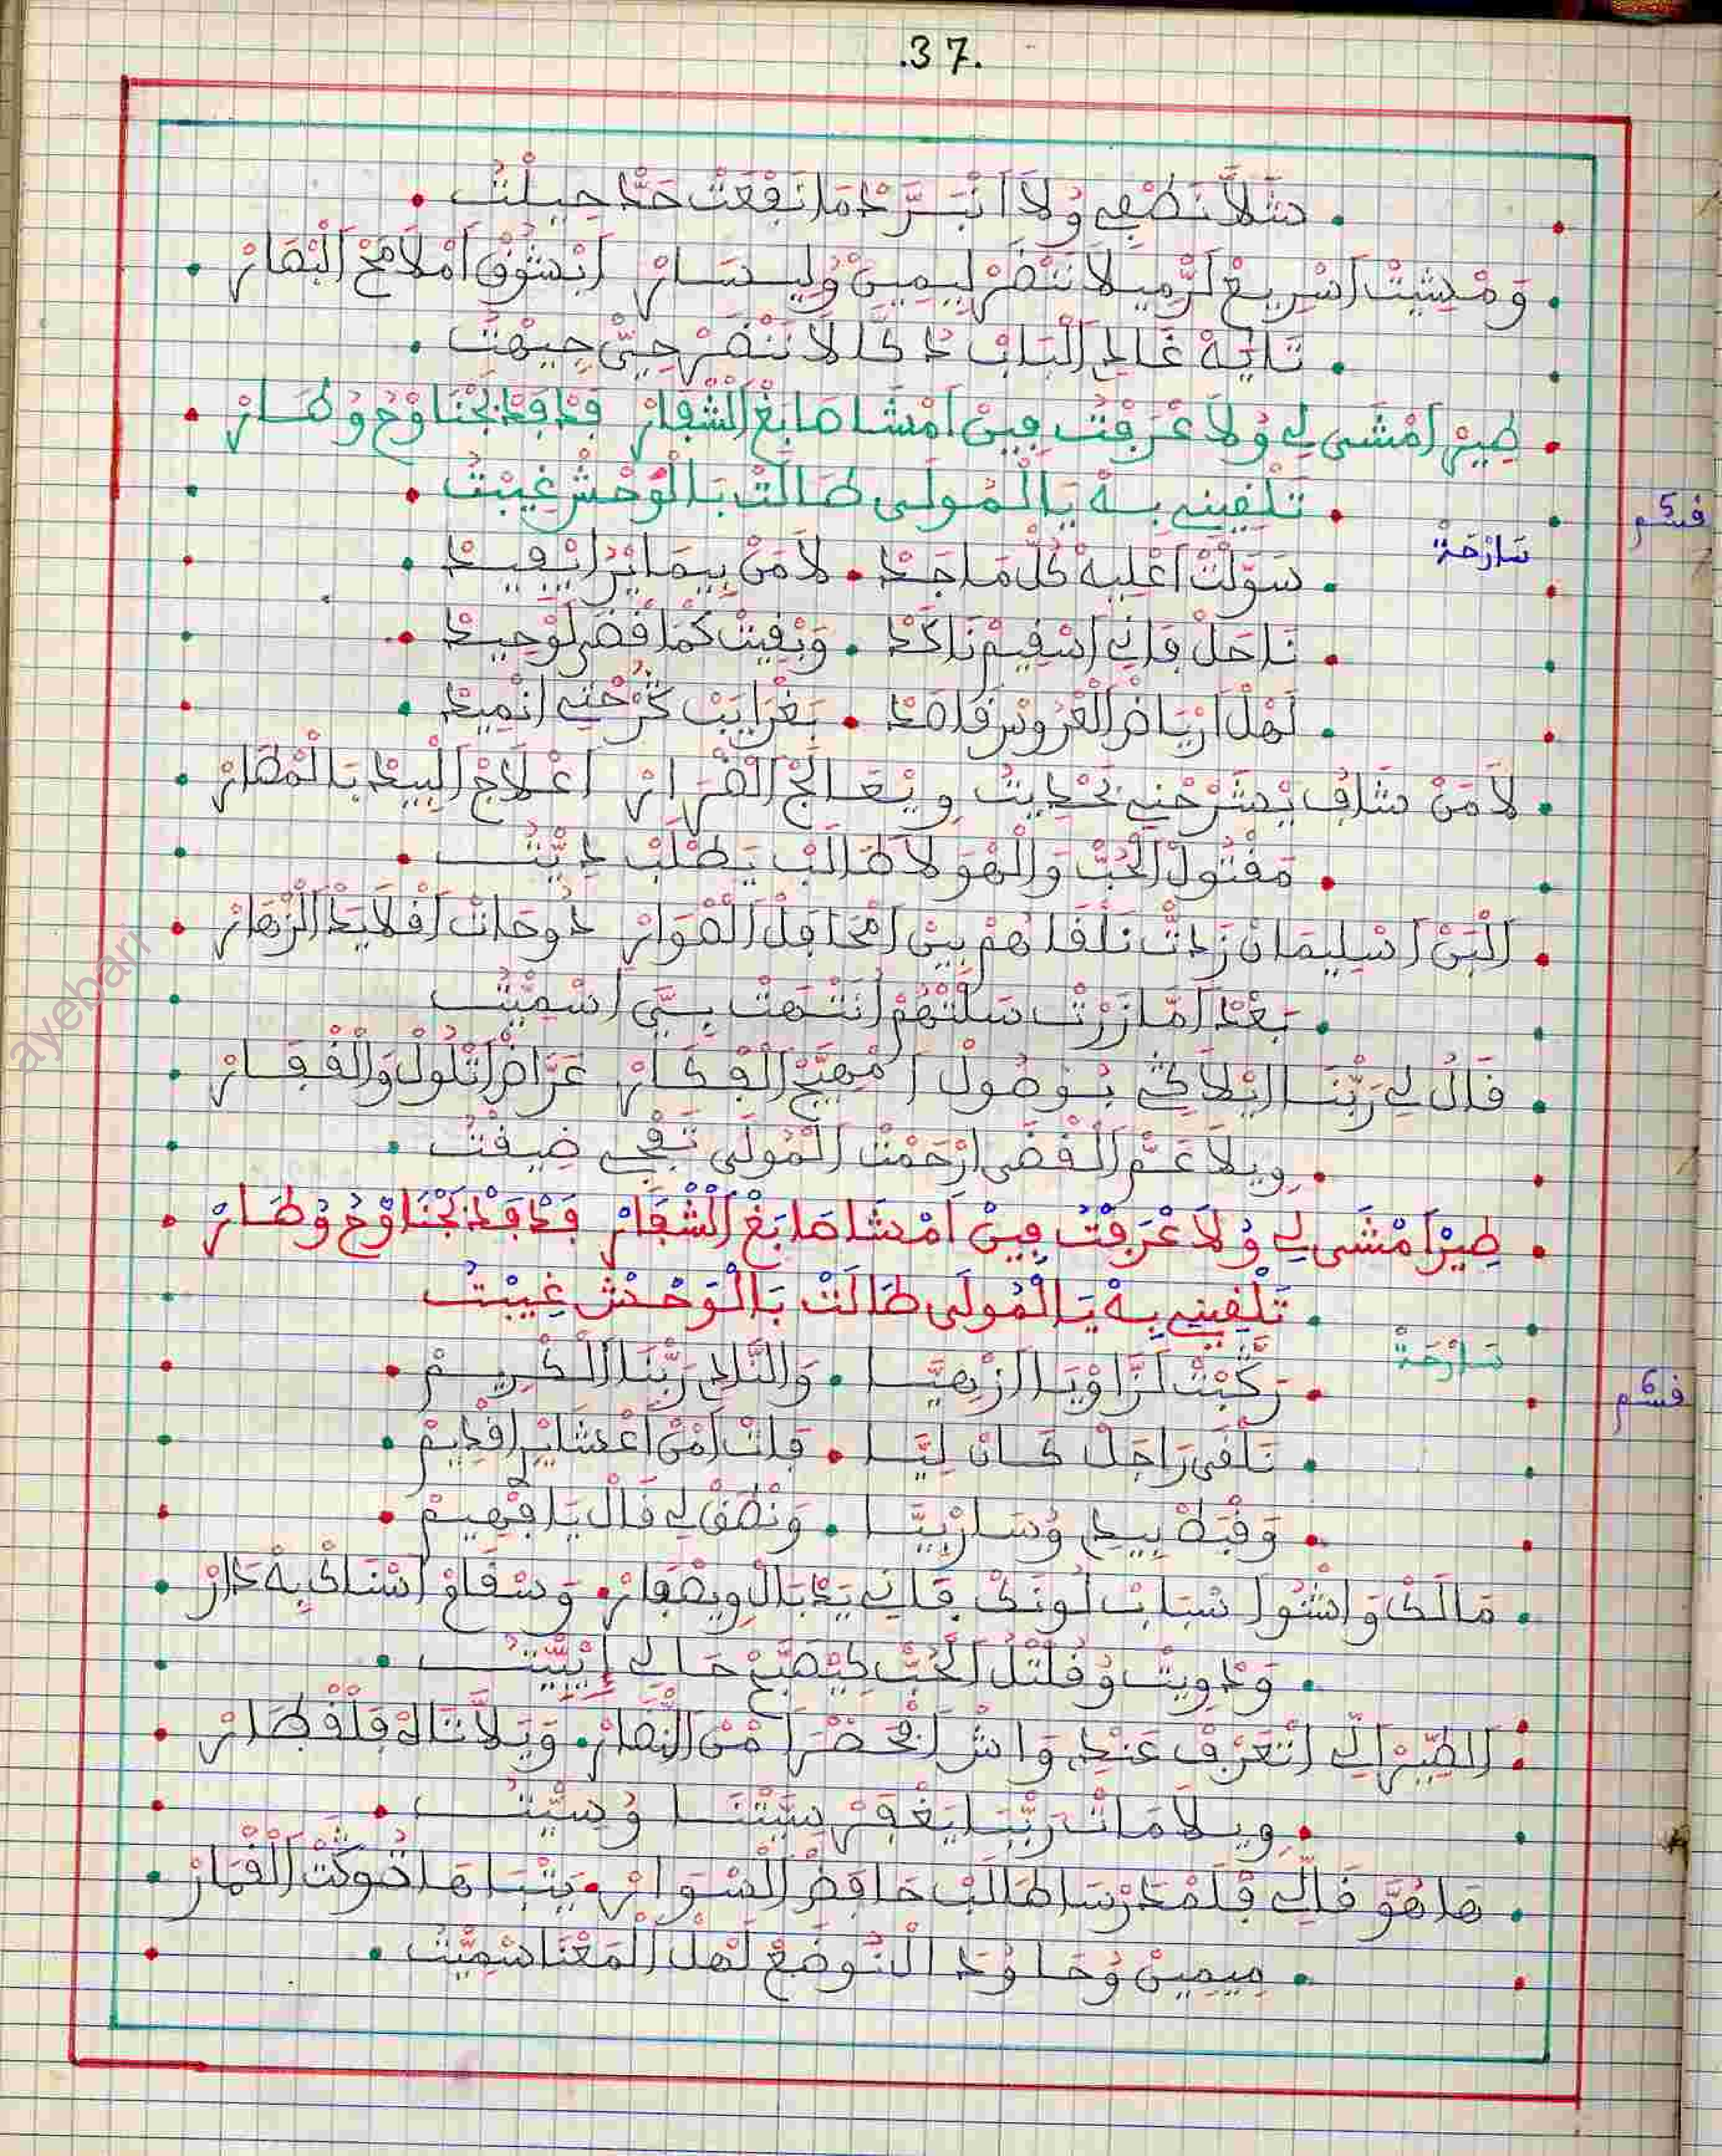 .37.
شَلاَّ نَطْفِي وُلاَ اَنْبَرَّدْ مَا نَفْعَتْ حَتَّى حِيلَتُ
وَمْشِيتْ اَسْرِيعْ لَرْمِيلاَ نَنْضَرْ لِيمِينْ وُلِيسَارْ اَنْشُوفْ اَمْلاَمَحْ اَلْبْقَارْ
تَايَهْ غَادِي اَلْبَابْ دْكَّالاَ نَنْضَرْ حِيّْ جِيهْتُ
طِيرْ اَمْشَى لِي وُلاَ عْرَفْتْ فِينْ اَمْشَا صَابَغْ اَلشْفَارْ فَدْفَدْ بَجْنَاوْحُ وُطَارْ
تَلْقِينِي بِهْ يَا اَلْمُولَى طَالَتْ بَالْوَحْشْ غِيبْتُ
قسم 5
سَارْحَةْ
سَوَّلْتْ اَعْلِيهْ كُلّْ مَاجَدْ لاَمَنْ بِيمَايْرُ اِيفِيدْ
نَاحَلْ فَانِي اَسْقِيمْ نَاكَدْ وَبْقِيتْ كَمَا قْضَى لَوْحِيدْ
لَهْلْ اَرْيَاضْ اَلْعْرُوسْ قَاصَدْ بَغْرَايَبْ كَرْحْتِي اَنْمِيدْ
لاَمَنْ شَافْ يَشْرَحْنِي بَحْدِيتُ وِيْعَالَجْ اَلضْرَارْ اَعْلاَجْ اَلْبِيدْ بَالْمْطَارْ
مَقْتُولْ اَلْحُبّْ وَالْهْوَى لاَطَالَبْ يَطْلَبْ دِيّْتُ
اَلْبَنْ اَسْلِيمَانْ زَدْتْ نَلْقَاهُمْ بِينْ اَمْحَافَلْ اَلصْوَارْ دُوحَاتْ اَقْلاَيَدْ اَلزْهَارْ
بَعْدْ اَمَّا زَرْتْ سَلْتْهُمْ اَنْتْهَتْ بِيَّ اَسْمِيّْتُ
قَالْ لِي رَبّْنَا اِيْلاَكِي بُوصُولْ اَمْهِيَّجْ اَلْفْكَارْ عَرَّاضْ اَتْلُولْ وَالْقْفَارْ
وِيلاَ عَمّْ اَلْقْضَى اَرْحَمْتْ اَلْمُولَى تَفْجِي ضِيقْتُ
طِيرْ اَمْشَى لِي وُلاَ عْرَفْتْ فِينْ اَمْشَا صَابَغْ اَلشْفَارْ فَدْفَدْ بَجْنَاوْحُ وُطَارْ
تَلْقِينِي بِهْ يَا اَلْمُولَى طَالَتْ بَالْوَحْشْ غِيبْتُ
سَارْحَةْ
قسم 6
رَكَّبْتْ لَزَّاوْيَا اَلزْهِيَّا وَالتَّلاَدِي رَبّْنَا اَلْكْرِيمْ
نَلْقَى رَاجَلْ كَانْ لِيَّا فَاتْ اَمْنْ اَعْشَايْرِ اَقْدِيمْ
وَقْبَطْ بِيدِي وُسَارْ بِيَّا وَنْطَقْ لِي قَالْ يَا فْهِيمْ
مَالَكْ وَاشْنُو اَسْبَابْ لُونَكْ فَانِي يَدْبَالْ وِيصْفَارْ وَسْقَامْ اَسْنَاكْ بِهْ دَارْ
وَدْوِيتْ وُقَلْتْ لُ اَلْحُبّْ كَيْصَبَّحْ حَالِي اِيْبِيّْتُ
اَلطِّيرْ اَلِّي اَتْعَرْفْ عَنْدِي وَاشْ اَلْحْضَرْ اَمْنْ اَلنّْضَارْ وَيْلاَ تَاهْ فَلْقْطَارْ
وِيلاَ مَاتْ رَبّْنَا يَغْفَرْ سِيّْتْنَا وُسِيّْتُ
هَاهُوَّ قَالِّي فَلْمْدَرْسَا طَالَبْ حَافَضْ اَلسْوَارْ يَتْبَاهَا ضُوكْتْ اَلْقْمَارْ
مِيمِينْ وُحَا وُدَ اَلتُّوضَعْ لَهْلْ اَلْمَعْنَا سْمِيّْتُ
ayebari